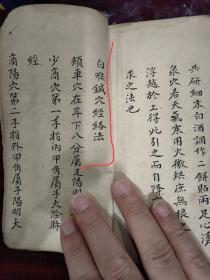 共研細末白酒調作二餅貼兩足心湧
泉穴若天氣寒用火微烘庶無根之
浮越於上得此引之而自降
求之法也
白喉鍼穴經絡法
頰車穴在耳下八分屬足陽明
少商穴第一手指內甲角屬手太陰肺
經
商陽穴第二手指外甲角屬手陽明大